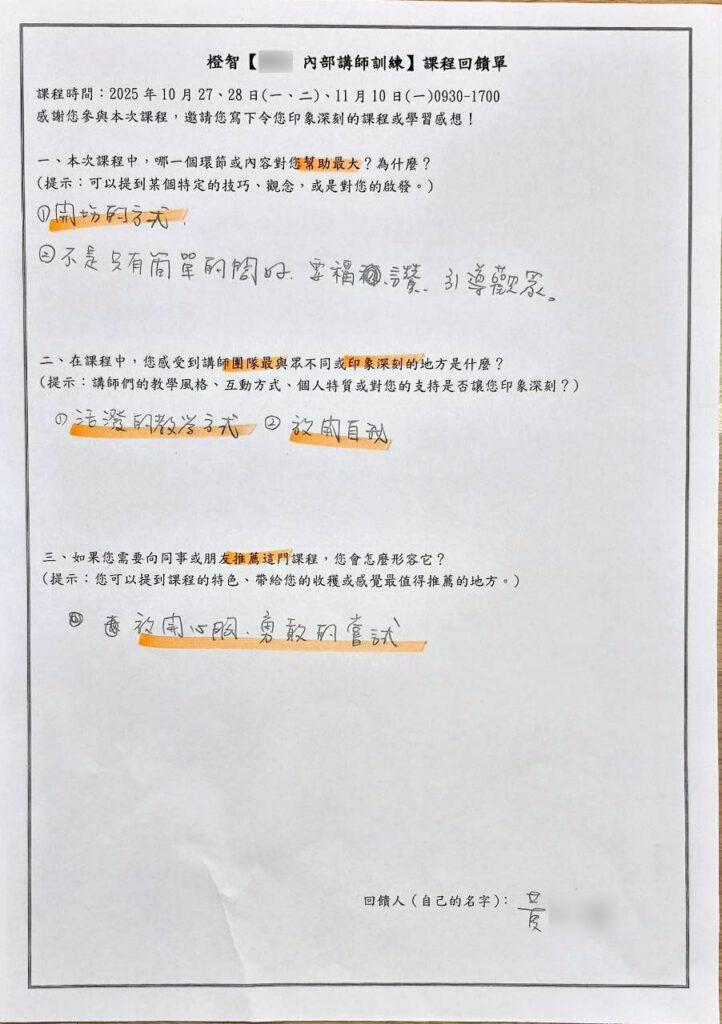 橙智【 內部講師訓練】課程回饋單
課程時間：2025 年 10 月 27、28 日(一、二)、11 月 10 日(一)0930-1700
感謝您參與本次課程，邀請您寫下令您印象深刻的課程或學習感想！
一、本次課程中，哪一個環節或內容對您幫助最大？為什麼？
(提示：可以提到某個特定的技巧、觀念，或是對您的啟發。)
①開場的方式.
②不是只有簡單的問好、要福、讚、引導觀眾。
二、在課程中，您感受到講師團隊最與眾不同或印象深刻的地方是什麼？
(提示：講師們的教學風格、互動方式、個人特質或對您的支持是否讓您印象深刻？)
①活潑的教学方式 ②放開自我
三、如果您需要向同事或朋友推薦這門課程，您會怎麼形容它？
(提示：您可以提到課程的特色、帶給您的收穫或感覺最值得推薦的地方。)
放開心胸、勇敢的嘗試
回饋人（自己的名字）：